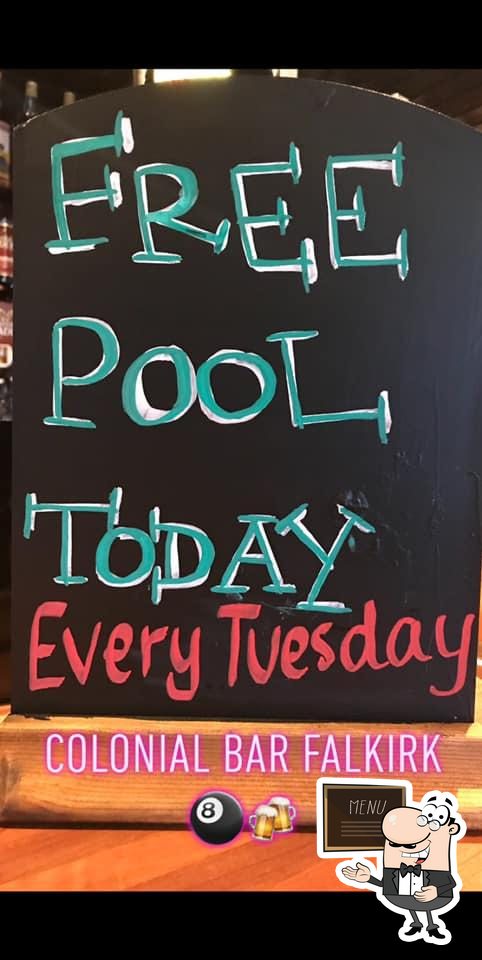 FREE
POOL
TODAY
Every Tuesday
COLONIAL BAR FALKIRK
8
MENU